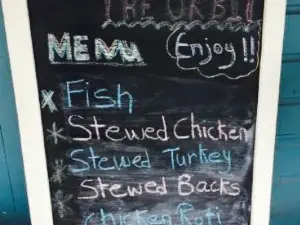 THE ORBIT
MENU Enjoy!!
x Fish
* Stewed Chicken
* Stewed Turkey
Stewed Backs
* Chicken Roti